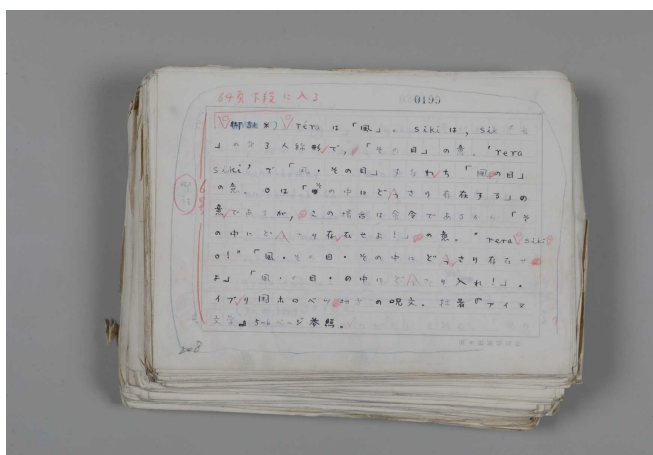 64頁下段に入る
0199
脚註※) réra は「風」. siki は, sik「目
」の第三人称形で,「その目」の意.“rera
siki”で「風・その目」すなわち「風の目」
の意. o は「その中にどっさり存在する」の
意であるが,この場合は命令であるから「そ
の中にどっさり存在せよ!」の意.“rera siki
o!”「風・その目・その中にどっさり存在せ
よ」「風・の目・の中にどっさり入れ!」.
イブリ国ホロベツ の呪文. 拙著『アイヌ
文学』 ページ参照.
208